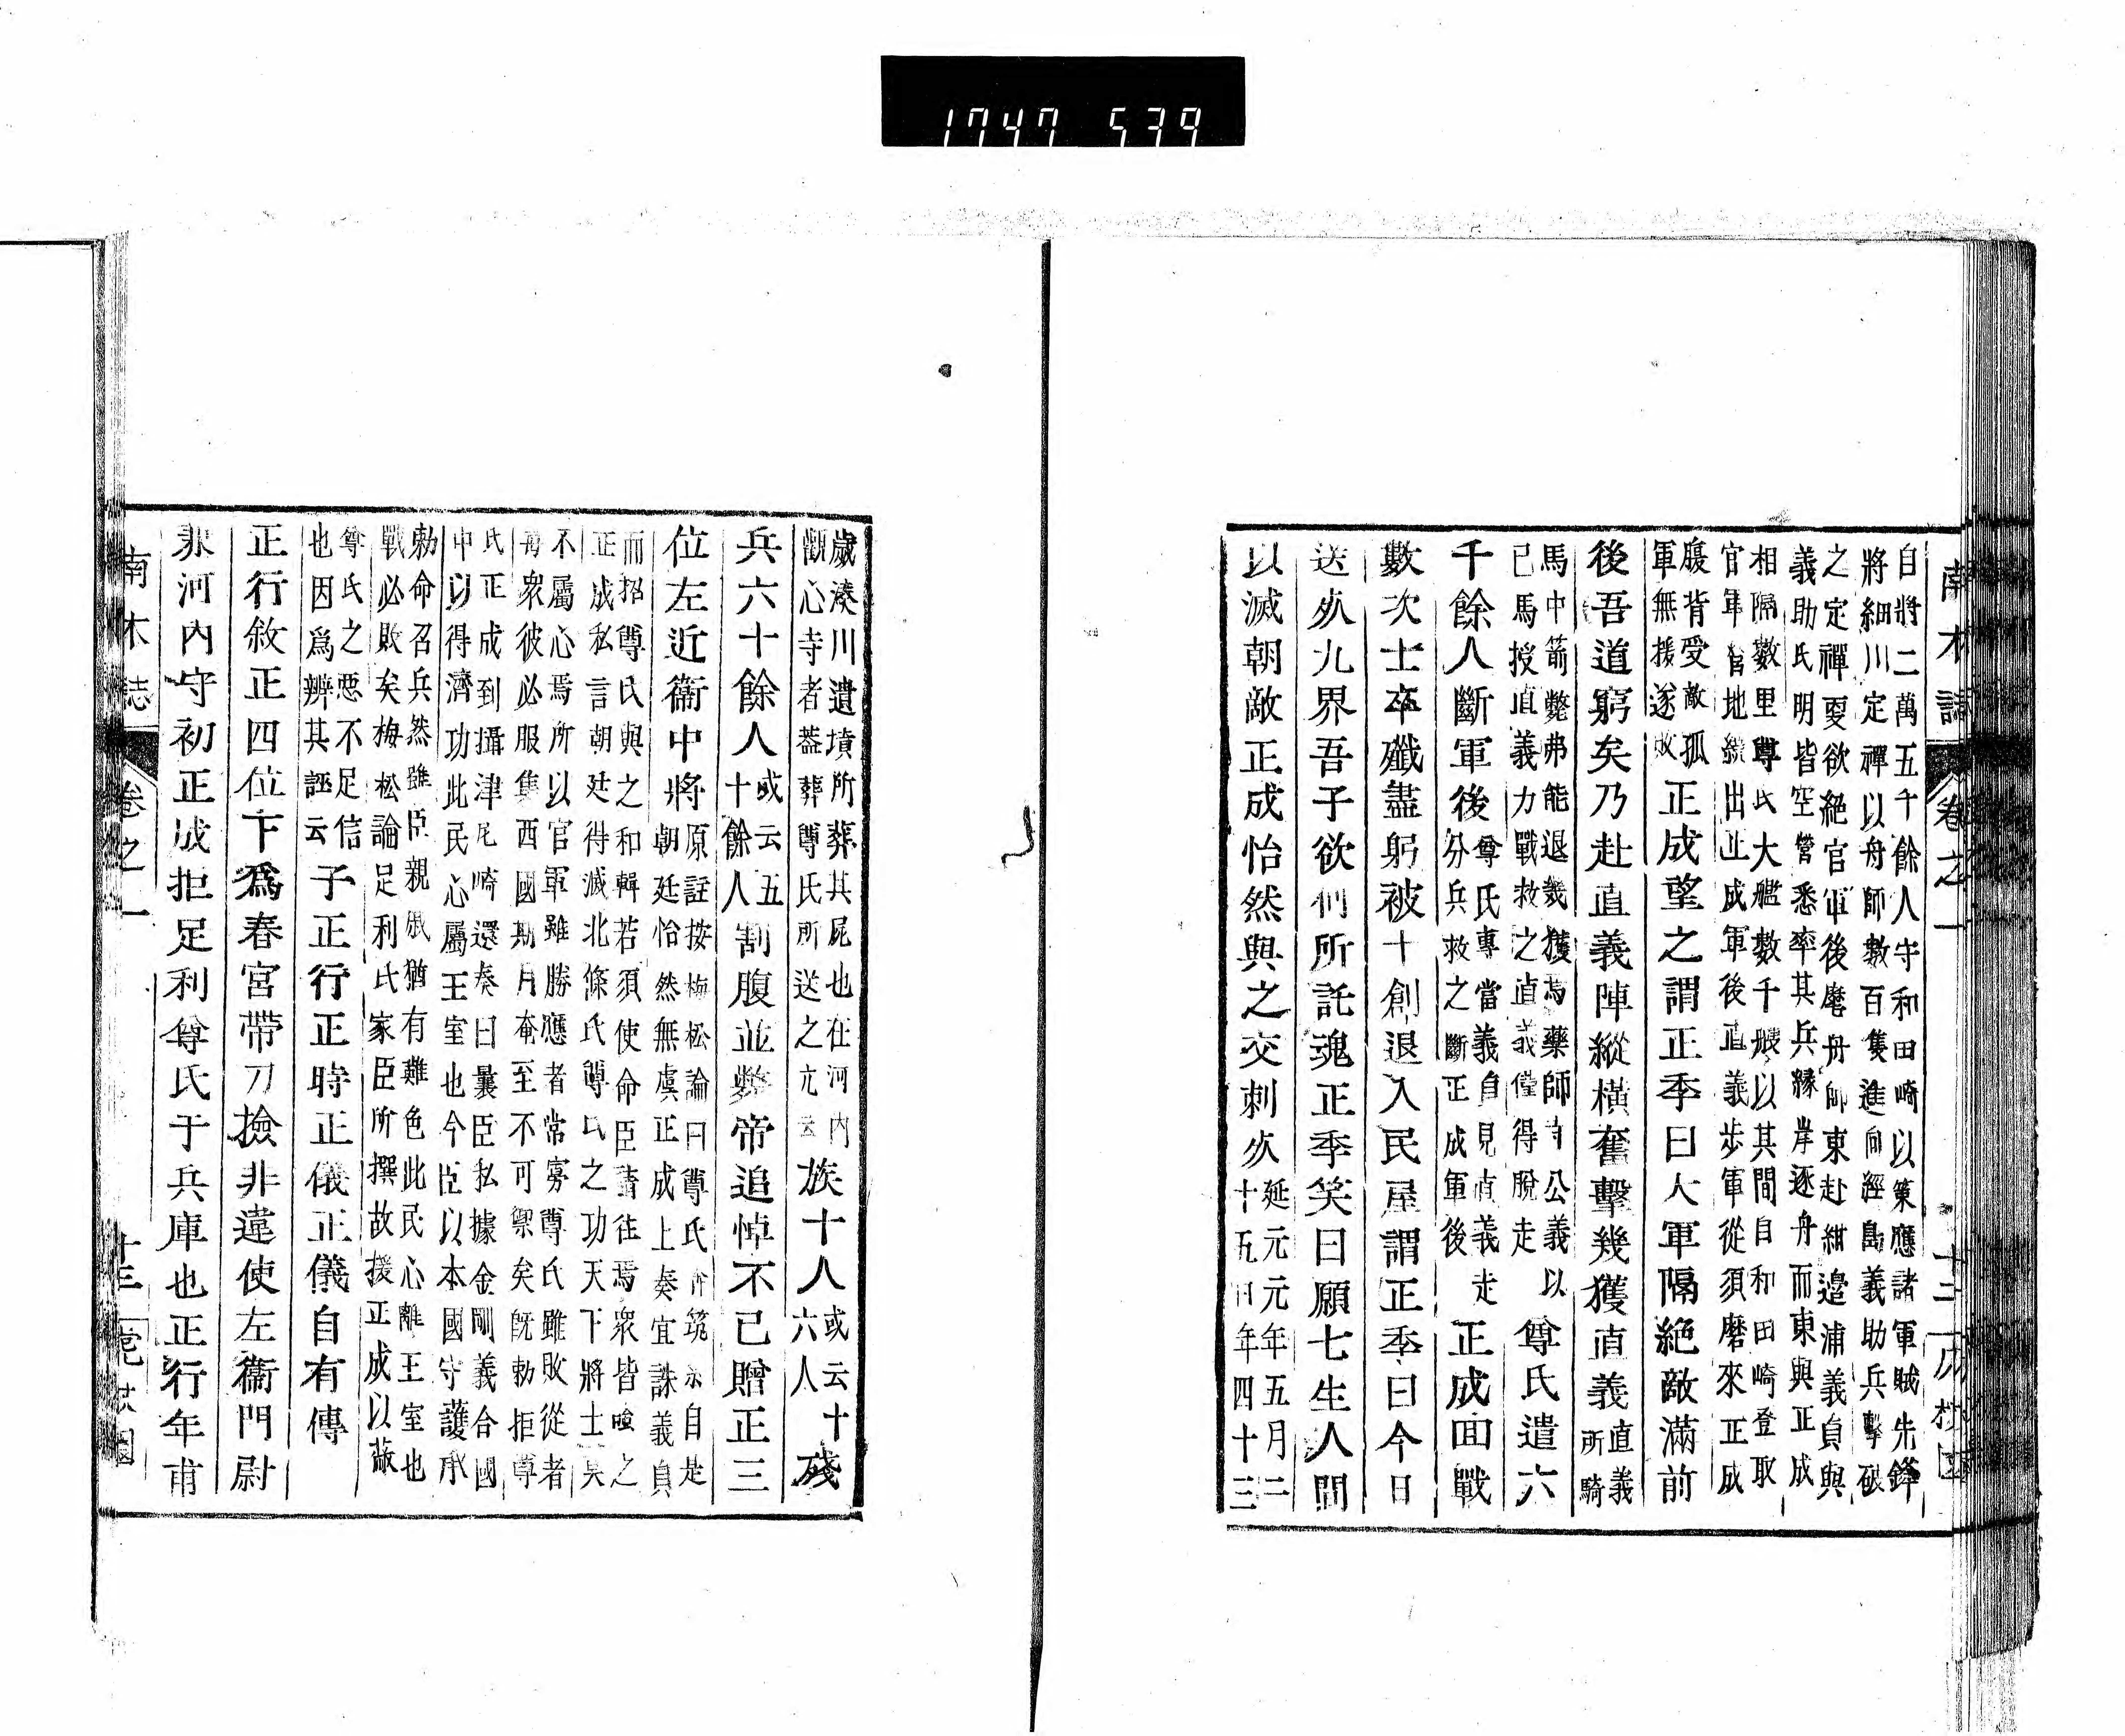 1747 539
南木誌 卷之一 十二
自將二萬五千餘人守和田崎以策應諸軍賊先鋒
將細川定禪以舟師數百隻進向經島義助兵擊破
之定禪更欲絕官軍後麾舟師東赴紺邉浦義貞與
義助氏明皆空營悉率其兵縁岸逐舟而東與正成
相隔數里尊氏大艦數千艘以其間自和田崎登取
官軍營地繞出正成軍後直義步軍從須磨來正成
腹背受敵孤
軍無援遂敗
正成望之謂正季曰大軍隔絶敵滿前
後吾道窮矣乃赴直義陣縱橫奮擊幾獲直義
直義
所騎
馬中箭斃弗能退幾獲焉藥師寺公義以
己馬授直義力戰救之直義僅得脫走
尊氏遣六
千餘人斷軍後
尊氏專當義貞見直義走
分兵救之斷正成軍後
正成面戰
數次士卒殲盡躬被十創退入民屋謂正季曰今日
送㱕九界吾子欲何所託魂正季笑曰願七生人間
以滅朝敵正成怡然與之交刺㱕
延元元年五月二
十五日年四十三
歲湊川遺墳所葬其屍也在河內
觀心寺者葢葬尊氏所送之元云
族十人
或云十
六人
殘
兵六十餘人
或云五
十餘人
割腹並斃帝追悼不已贈正三
位左近衞中將
原註按梅松論曰尊氏奔筑紫自是
朝廷怡然無虞正成上奏宜誅義貞
而招尊氏與之和輯若須使命臣請往焉衆皆嗤之
正成私言朝廷得滅北條氏尊氏之功天下將士莫
不屬心焉所以官軍雖勝應者常寡尊氏雖敗從者
每衆彼必服集西國期月奄至不可禦矣旣勅拒尊
氏正成到攝津尼崎還奏曰曩臣私據金剛義合國
中以得濟功此民心屬王室也今臣以本國守護承
勅命召兵然雖臣親戚猶有難色此民心離王室也
戰必敗矣梅松論足利氏家臣所撰故援正成以蔽
尊氏之惡不足信
也因爲辨其誣云
子正行正時正儀正儀自有傳
正行敘正四位下爲春宮帶刀撿非違使左衞門尉
兼河內守初正成拒足利尊氏于兵庫也正行年甫
南木誌 卷之一 十三